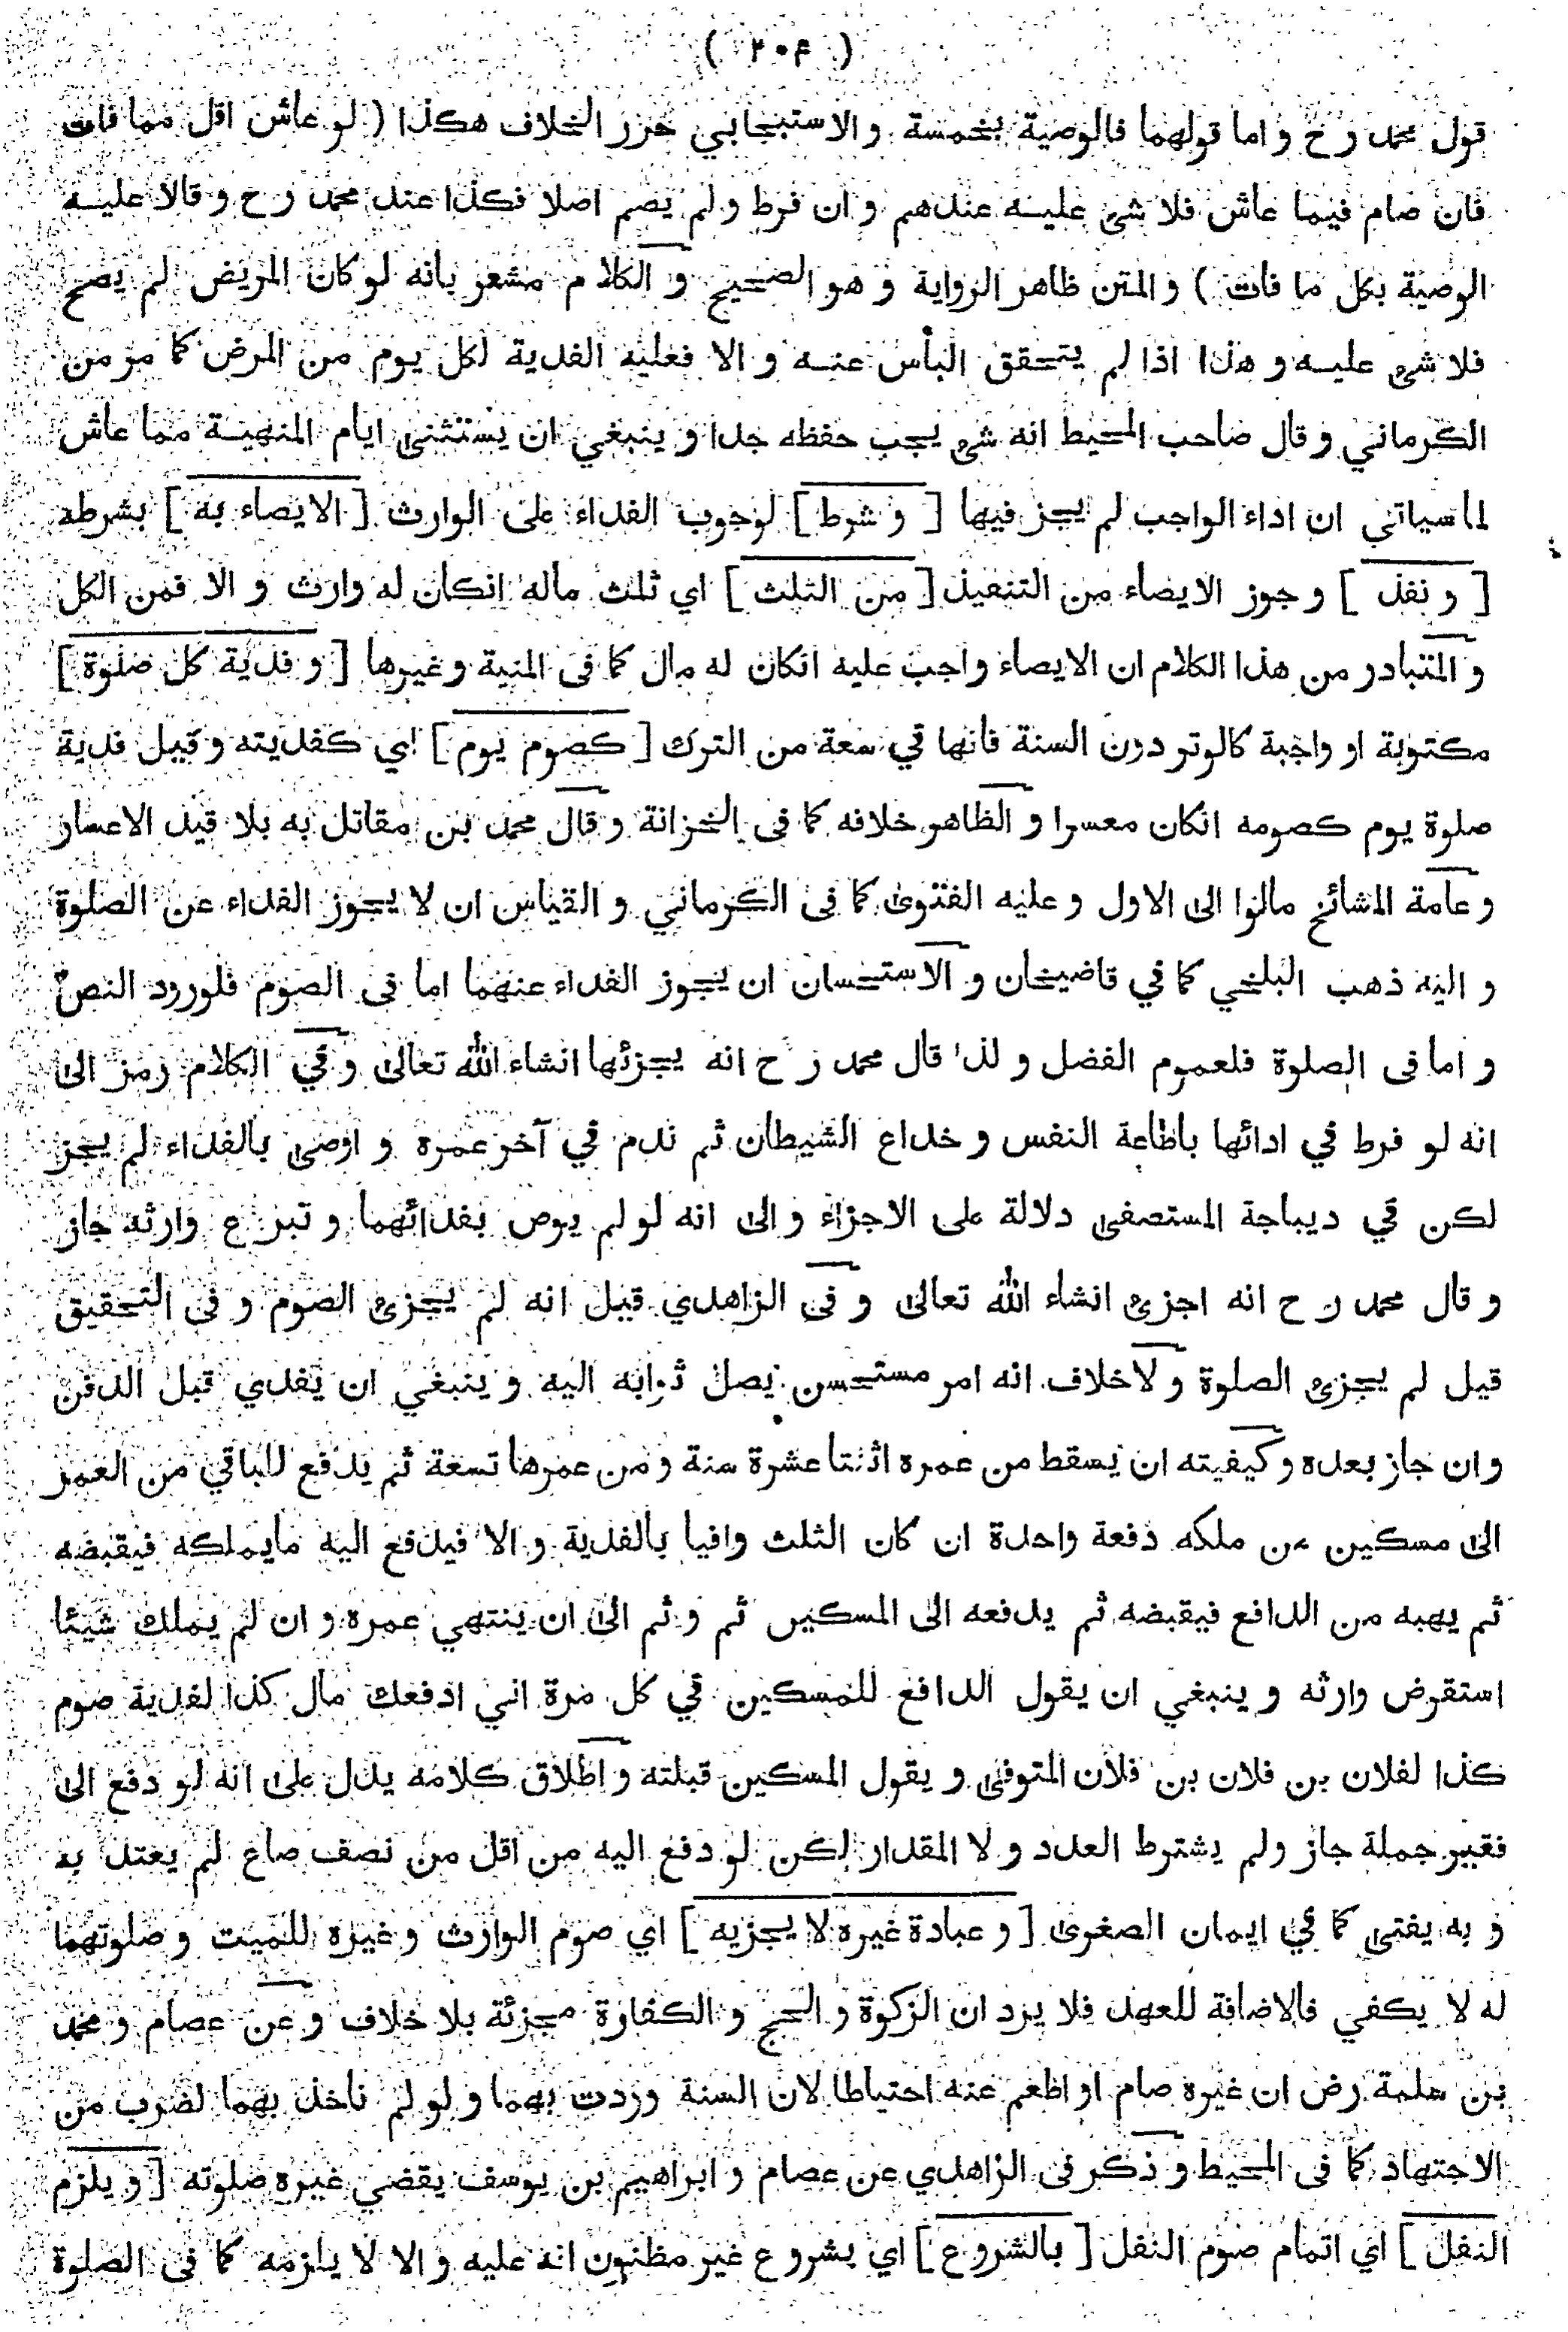 ( ٢٠٤ )
قول محمد رح واما قولهما فالوصية بخمسة والاستبيجابي حرر الخلاف هكذا ( لو عاش اقل مما فات
فان صام فيما عاش فلا شئ عليه عندهم وان فرط ولم يصم اصلا فكذا عند محمد رح وقالا عليه
الوصية بكل ما فات ) والمتن ظاهر الرواية وهو الصحيح والكلام مشعر بانه لو كان المريض لم يصح
فلا شئ عليه وهذا اذا لم يتحقق اليأس عنه والا فعليه الفدية لكل يوم من المرض كما مر من
الكرماني وقال صاحب المحيط انه شئ يجب حفظه جدا وينبغي ان يستثنى ايام المنهية مما عاش
لما سياتي ان اداء الواجب لم يجز فيها [ وشرط ] لوجوب الفداء على الوارث [ الايصاء به ] بشرطه
[ ونفذ ] وجوز الايصاء من التنفيذ [ من الثلث ] اي ثلث ماله انكان له وارث والا فمن الكل
والمتبادر من هذا الكلام ان الايصاء واجب عليه انكان له مال كما فى المنية وغيرها [ وفدية كل صلوة ]
مكتوبة او واجبة كالوتر دون السنة فانها في سعة من الترك [ كصوم يوم ] اي كفديته وقيل فدية
صلوة يوم كصومه انكان معسرا والظاهر خلافه كما فى الخزانة وقال محمد بن مقاتل به بلا قيد الاعسار
وعامة المشائخ مالوا الى الاول وعليه الفتوى كما فى الكرماني والقياس ان لا يجوز الفداء عن الصلوة
واليه ذهب البلخي كما في قاضيخان والاستحسان ان يجوز الفداء عنهما اما فى الصوم فلورود النص
واما فى الصلوة فلعموم الفضل ولذا قال محمد رح انه يجزئها انشاء الله تعالى وفي الكلام رمز الى
انه لو فرط في ادائها باطاعة النفس وخداع الشيطان ثم ندم في آخر عمره واوصى بالفداء لم يجز
لكن في ديباجة المستصفى دلالة على الاجزاء والى انه لو لم يوص بفدائهما وتبرع وارثه جاز
وقال محمد رح انه اجزئ انشاء الله تعالى وفى الزاهدي قيل انه لم يجزئ الصوم وفى التحقيق
قيل لم يجزئ الصلوة ولا خلاف انه امر مستحسن يصل ثوابه اليه وينبغي ان يفدي قبل الدفن
وان جاز بعده وكيفيته ان يسقط من عمره اثنتا عشرة سنة ومن عمرها تسعة ثم يدفع للباقي من العمر
الى مسكين من ملكه دفعة واحدة ان كان الثلث وافيا بالفدية والا فيدفع اليه مايملكه فيقبضه
ثم يهبه من الدافع فيقبضه ثم يدفعه الى المسكين ثم وثم الى ان ينتهي عمره وان لم يملك شيئا
استقرض وارثه وينبغي ان يقول الدافع للمسكين في كل مرة اني ادفعك مال كذا لفدية صوم
كذا لفلان بن فلان بن فلان المتوفى ويقول المسكين قبلته واطلاق كلامه يدل على انه لو دفع الى
فقير جملة جاز ولم يشترط العدد ولا المقدار لكن لو دفع اليه من اقل من نصف صاع لم يعتد به
وبه يفتى كما في ايمان الصغرى [ وعبادة غيره لا يجزيه ] اي صوم الوارث وغيره للميت وصلوتهما
له لا يكفي فالاضافة للعهد فلا يرد ان الزكوة والحج والكفارة مجزئة بلا خلاف وعن عصام ومحمد
بن سلمة رض ان غيره صام او اطعم عنه احتياطا لان السنة وردت بهما ولو لم ناخذ بهما لضرب من
الاجتهاد كما فى المحيط وذكر فى الزاهدي عن عصام وابراهيم بن يوسف يقضي غيره صلوته [ ويلزم
النفل ] اي اتمام صوم النفل [ بالشروع ] اي بشروع غير مظنون انه عليه والا لا يلزمه كما فى الصلوة